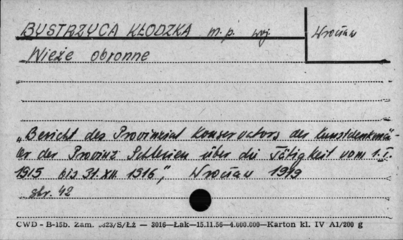 BYSTRZYCA KŁODZKA m.p. woj. Wrocław
Wieże obronne
„Bericht des Provinzial Konservators der Kunstdenkmä-
er der Provinz Schlesien über die Tätigkeit vom 1.I.
1915 bis 31.XII 1916", Wrocław 1919
str. 42
CWD - B-15b. Zam. /S/Łż — 2016—Łak—15.11.56—4.000.000—Karton kl. IV A1/200 g